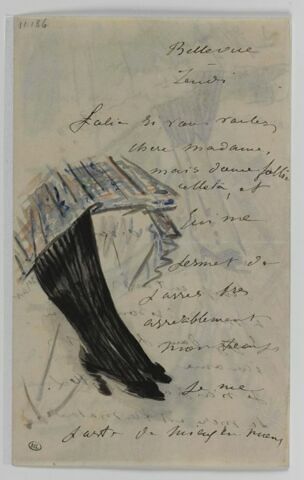 11.186
Bellevue
Jeudi
Jolie si vous voulez,
chère madame,
mais d'une
et
qui me
permet de
passer très
agréablement
mon temps
Je me
porte de mieux en mieux